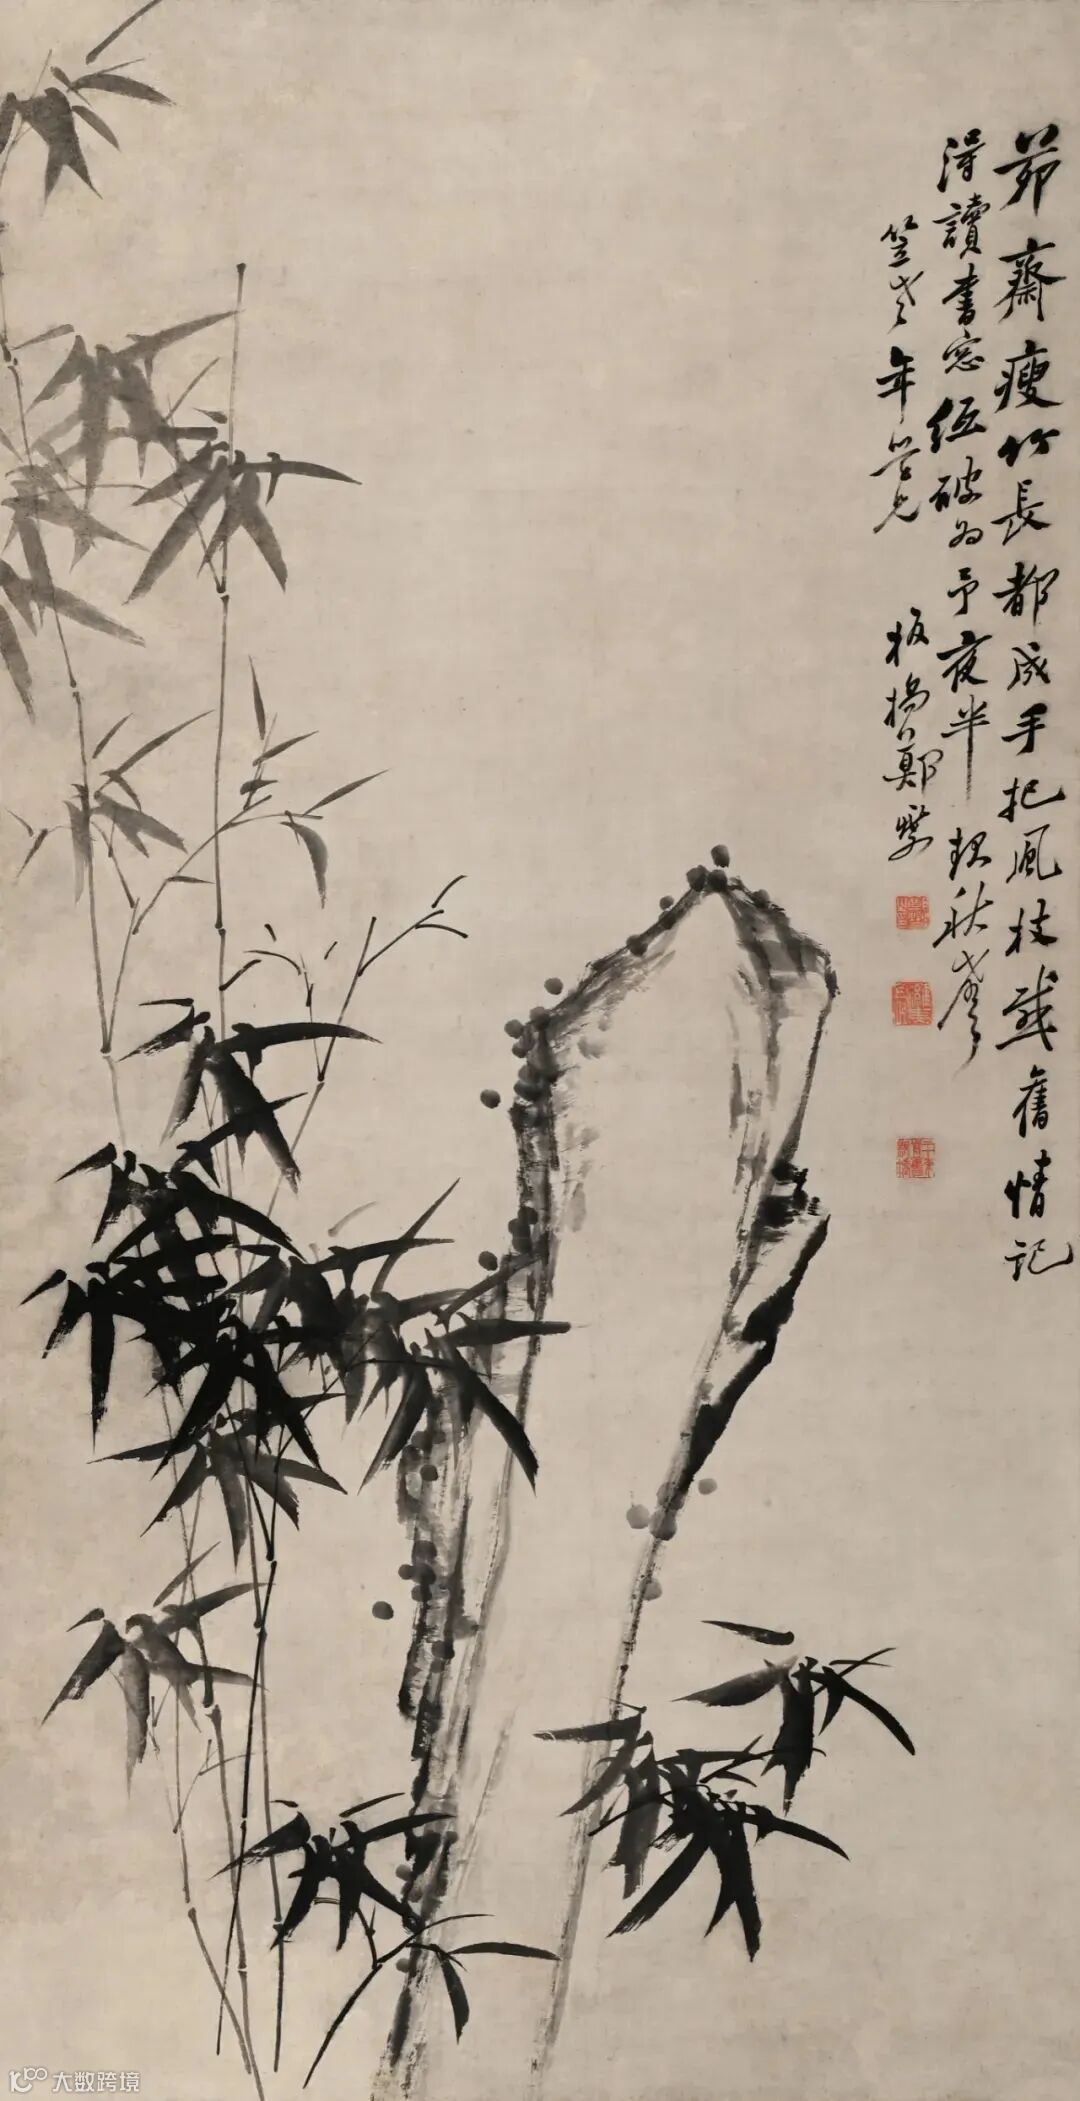 茆齋瘦竹長都成手把風枝感舊情記
得讀書窓紙破為予夜半報秋聲
笠老年學兄　板橋鄭燮
大数跨境